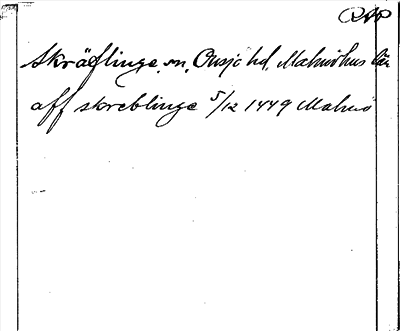 RAP
Skräflinge sn, Oxie hd, Malmöhus län
aff skreblinge 5/12 1449 Malmö